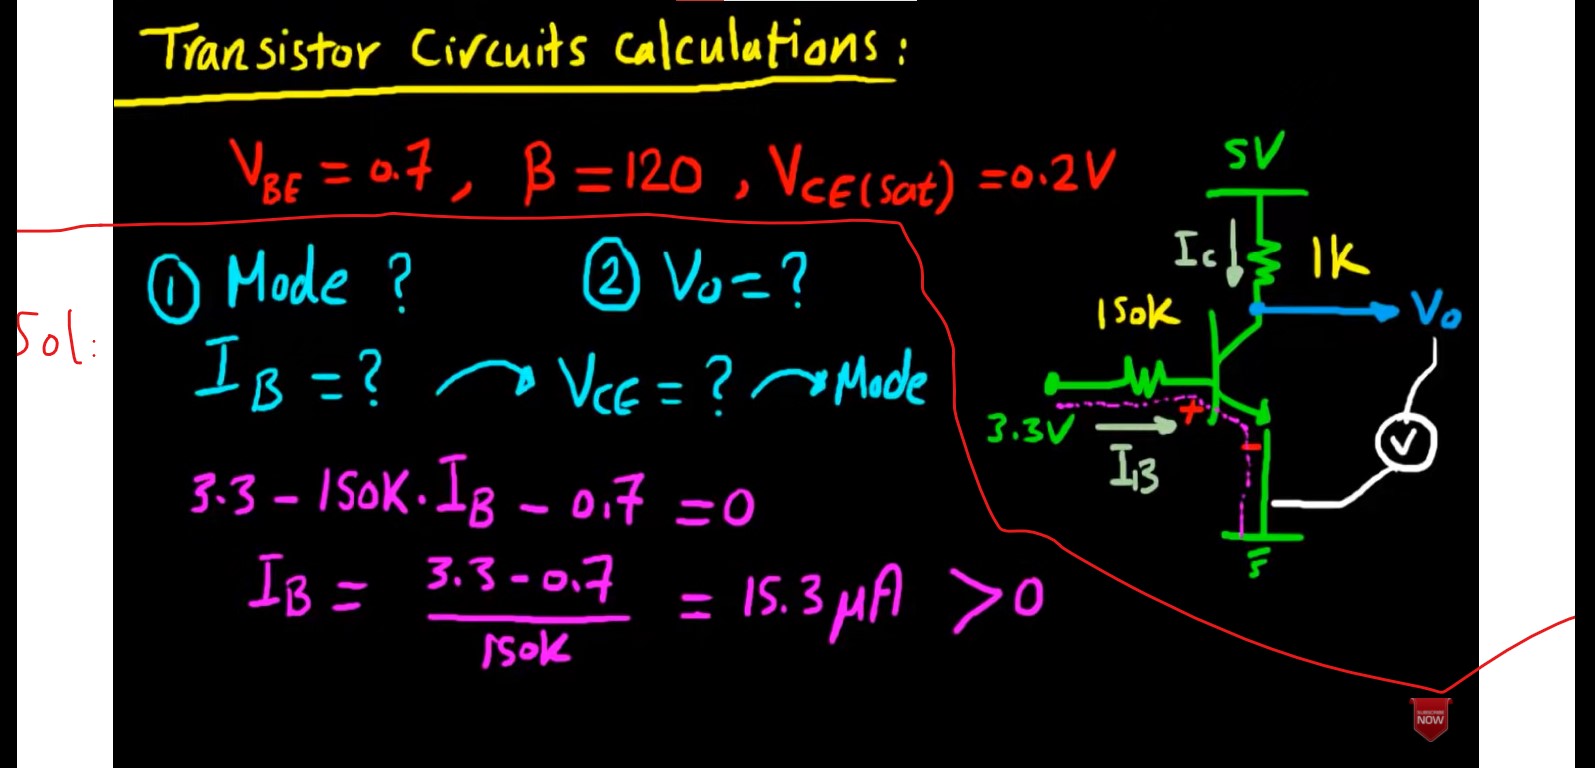 Transistor Circuits Calculations:
V_BE = 0.7, β = 120, V_CE(sat) = 0.2V
① Mode ? ② Vo = ?
Sol:
I_B = ? → V_CE = ? → Mode
3.3 - 150K.I_B - 0.7 = 0
I_B = (3.3 - 0.7) / 150K = 15.3 μA > 0
5V
Ic
1K
150K
Vo
+
3.3V
-
V
I_B
SUBSCRIBE
NOW